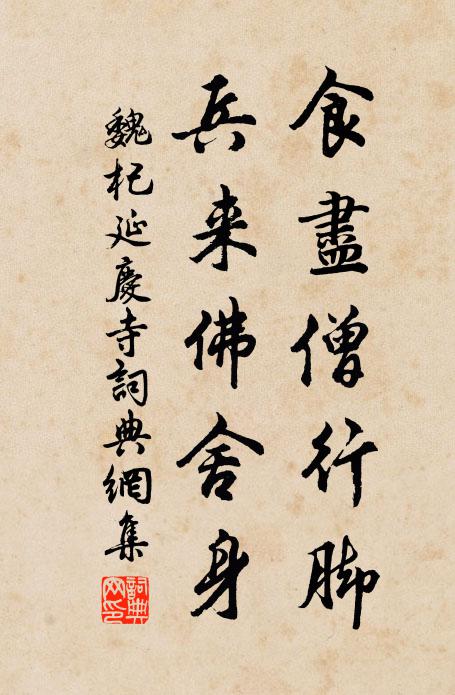 食盡僧行脚
兵来佛舍身
魏杞延慶寺詞典網集
詞典網印